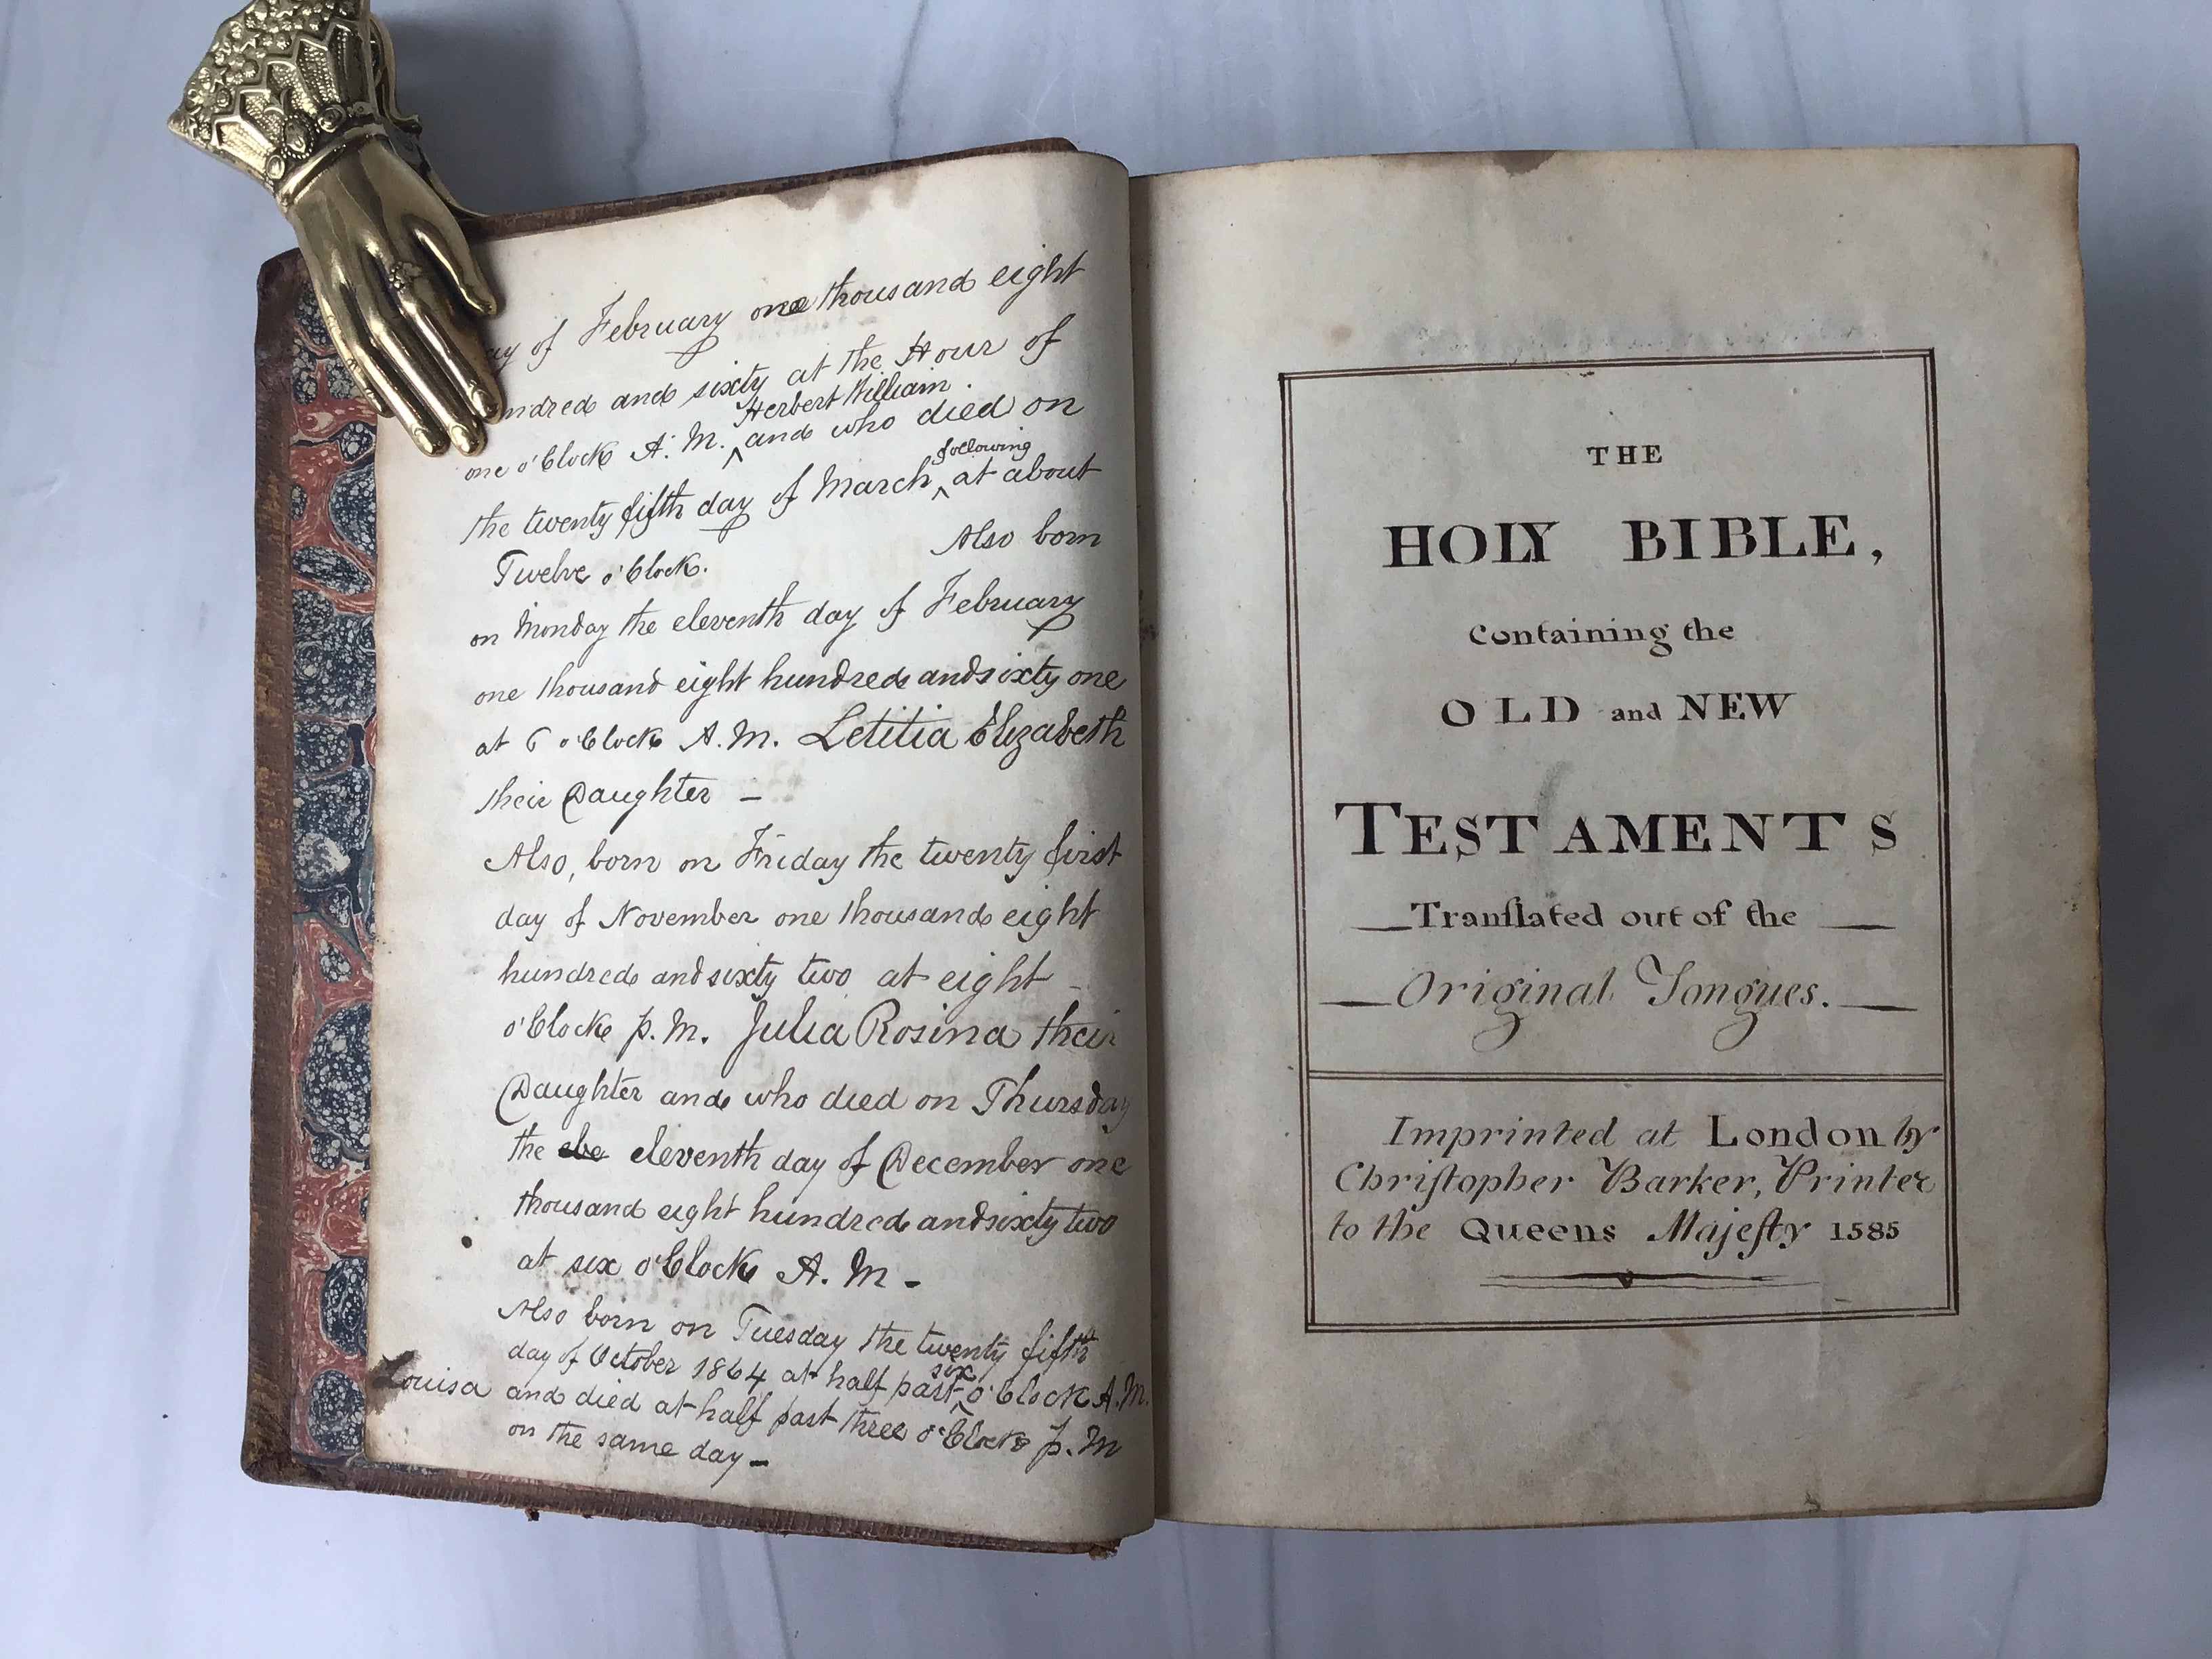 ay of February one thousand eight
undred and sixty at the Hour of
Herbert William
one o'Clock A.M. ^ and who died on
following
the twenty fifth day of March ^ at about
Twelve o'Clock. Also born
on Monday the eleventh day of February
one thousand eight hundred and sixty one
at 6 o'Clock A.M. Letitia Elizabeth
their Daughter —
Also, born on Friday the twenty first
day of November one thousand eight
hundred and sixty two at eight
o'Clock p.M. Julia Rosina their
Daughter and who died on Thursday
the ele eleventh day of December one
thousand eight hundred and sixty two
at six o'Clock A.M –
Also born on Tuesday the twenty fifth
six
day of October 1864 at half past ^ o'Clock A.M.
Louisa and died at half past three o'Clock p.M
on the same day –
THE
HOLY BIBLE,
Containing the
OLD and NEW
TESTAMENTS
— Tranſlated out of the —
— Original Tongues. —
Imprinted at London by
Chriſtopher Barker, Printer
to the Queens Majeſty 1585